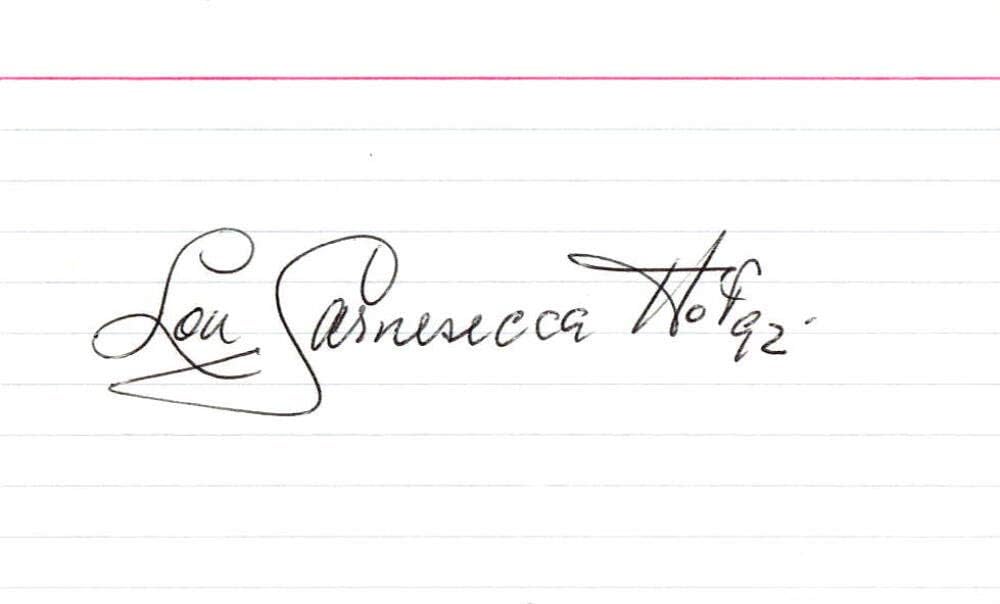 Lou Carnesecca HoF 92